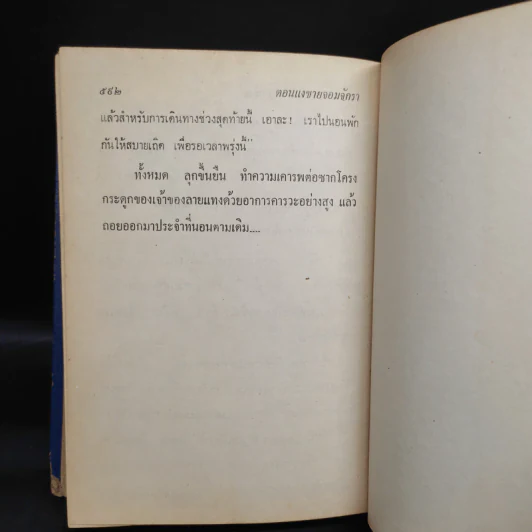 ๕๙๒ ตอนแงซายจอมจักรา
แล้วสำหรับการเดินทางช่วงสุดท้ายนี้ เอาละ! เราไปนอนพัก
กันให้สบายเถิด เพื่อรอเวลาพรุ่งนี้"
ทั้งหมด ลุกขึ้นยืน ทำความเคารพต่อซากโครง
กระดูกของเจ้าของลายแทงด้วยอาการคารวะอย่างสูง แล้ว
ถอยออกมาประจำที่นอนตามเดิม....